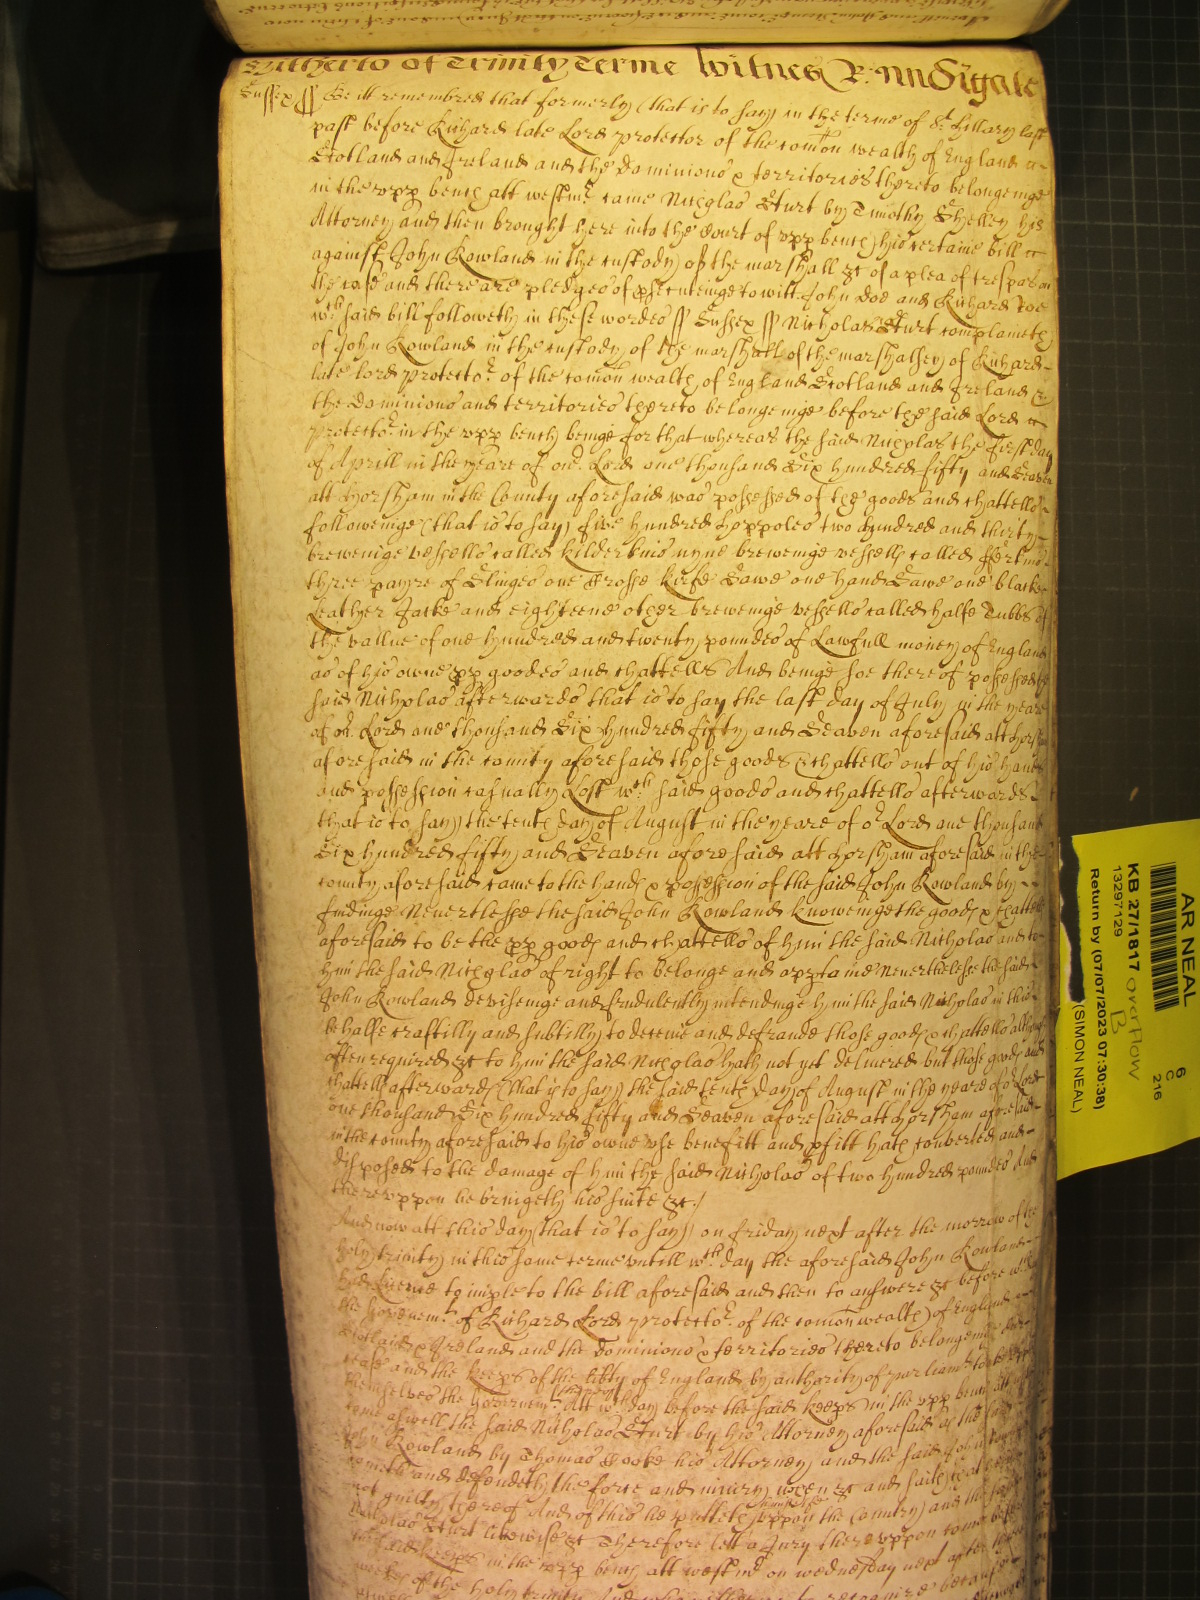 Hitherto of Trinity Terme Witnes R: Nudigate
Sussex ss Be itt remembred that formerly (that is to say) in the terme of St. Hillary last
past before Richard late Lord protector of the comon wealth of England
Scotland and Ireland and the Dominions & territories thereto belongeinge
in the vpp bench att westmr. came Nicholas Sturt by Timothy Shelley his
Attorney and then brought here into the Court of vpp bench his certaine bill
against John Rowland in the custody of the marshall &c of a plea of trespas on
the case and there are pledges of psecuteinge to witt John Doe and Richard Roe
wch. said bill followeth in these wordes ss Sussex ss Nicholas Sturt complaineth
of John Rowland in the custody of the marshall of the marshalsey of Richard
late lord protector. of the comon wealth of England Scotland and Ireland &
the Dominions and territories thereto belongeinge before the said Lord
protector. in the vpp bench beinge for that whereas the said Nicholas the first day
of Aprill in the yeare of our. Lord one thousand Six hundred fifty and Seaven
att Horsham in the County aforesaid was possessed of the goods and chattells
followeinge (that is to say) five hundred hoppoles two hundred and thirty
breweinge vessells called kilderkins nyne breweinge vessells called ffirkins
three payre of Slinges one Crosse kutt Sawe one hand Sawe one blacke
Leather Jacke and eighteene other breweinge vessells called halfe Tubbs of
the vallue of one hundred and twenty poundes of Lawfull money of England
as of his owne pp goodes and chattells And beinge soe thereof possessed the
said Nicholas afterwards that is to say the last day of July in the yeare
of our. Lord one thousand Six hundred fifty and Seaven aforesaid att Horsham
aforesaid in the county aforesaid those goods & chattells out of his hands
and possession casually Lost wch. said goods and chattells afterwards
that is to say) the tenth day of August in the yeare of or Lord one thousand
Six hundred fifty and Seaven aforesaid att horsham aforesaid in the
county aforesaid came to the hands & possession of the said John Rowland by
findinge Nevertlesse the said John Rowland knoweinge the goods & chattells
aforesaid to be the pp goods and chattells of him the said Nicholas and to
him the said Nicholas of right to belonge and apptaine Neverthelesse the said
John Rowland deviseinge and fradulently intendinge him the said Nicholas in this
behalfe craftilly and subtilly to deceive and defraude those goods & chattells although
often required &c to him the said Nicholas hath not yet delivered but those goods and
chattells afterwards (that is to say) the said tenth day of August in the yeare of or Lord
one thousand Six hundred fifty and Seaven aforesaid att horsham aforesaid
in the county aforesaid to his owne vse benefitt and pfitt hath converted and
disposed to the damage of him the said Nicholas of two hundred poundes And
therevppon he bringeth his suite &c./
And now att this day (that is to say) on friday next after the morrow of the
holy trinity in this same terme vntill wch. day the aforesaid John Rowland
had licence to imple to the bill aforesaid and then to answere &c before
the Governemt. of Richard Lord protector. of the comon wealth of England
Scotland & Ireland and the Dominions & territories thereto belongeinge
ceased and the keeps of the libty of England by authority of parliamt
themselves the Governemt. Att wch day before the said keeps in the vpp bench att
come aswell the said Nicholas Sturt by his Attorney aforesaid as the said
John Rowland by Thomas Cooke his Attorney and the said John
cometh and defendeth the force and iniury when &c and saith that
not guilty thereof And of this he putteth himselfe vppon the Country and the said
Nicholas Sturt likewise &c Therefore lett a Jury therevppon come before
the said keeps in the vpp bench att westmr on wednesday next after three
weekes of the holy trinity And
AR NEAL
6
C
216
KB 27/1817 overflow
B
13297129
Return by (07/07/2023 07:30:38)
(SIMON NEAL)